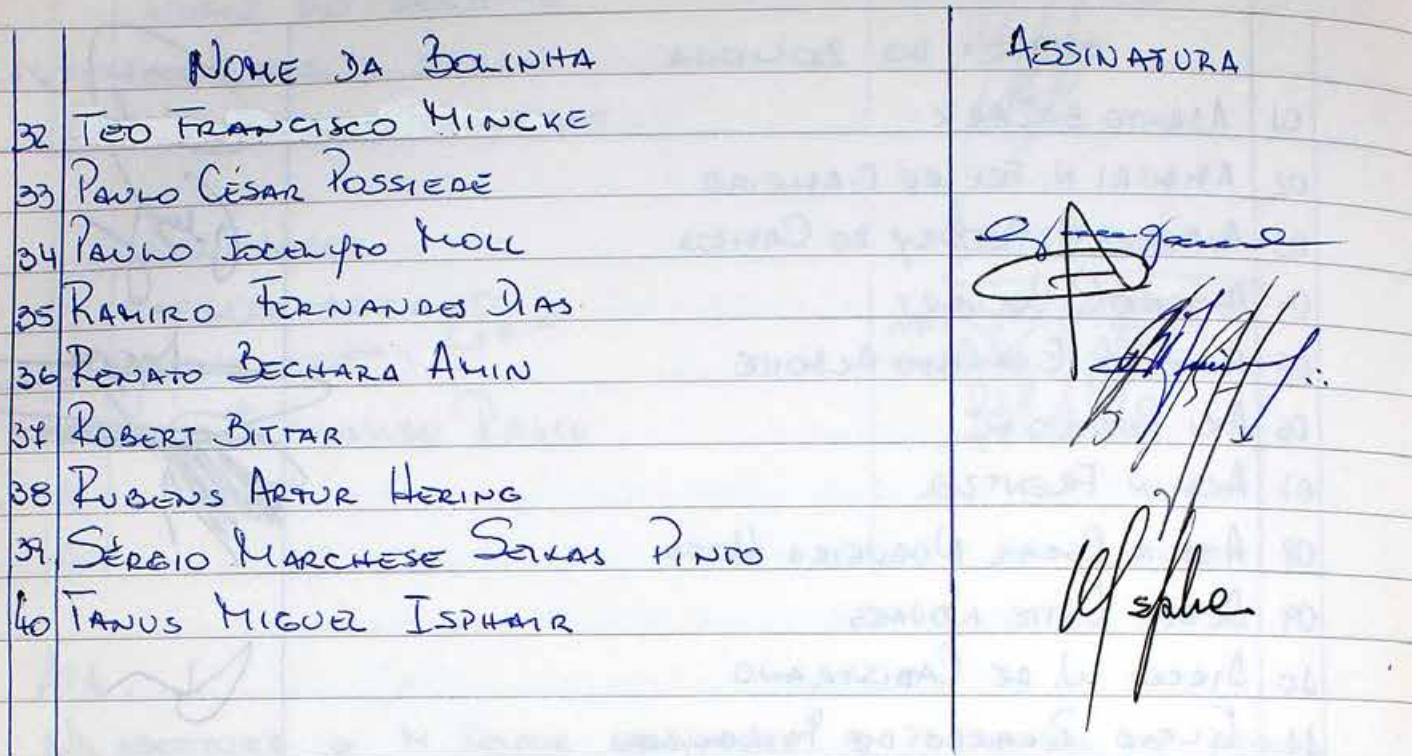 NOME DA BOLINHA ASSINATURA
32 TEO FRANCISCO MINCKE
33 PAULO CÉSAR POSSIEDE
34 PAULO JOCELYTO MOLL
35 RAMIRO FERNANDES DIAS
36 RENATO BECHARA AMIN
37 ROBERT BITTAR
38 RUBENS ARTUR HERING
39. SÉRGIO MARCHESE SEIXAS PINTO
40 TANUS MIGUEL ISPHAIR